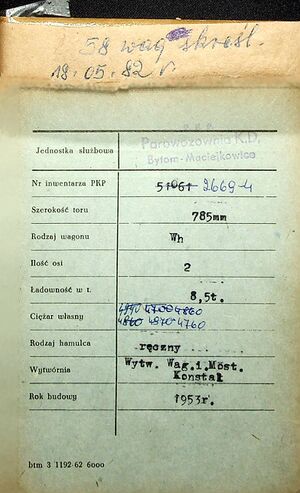 58 wag skreśl.
18.05.82 r
Jednostka służbowa
Parowozownia K.D.
Bytom-Maciejkowice
Nr inwentarza PKP 51061 2669-4
Szerokość toru 785mm
Rodzaj wagonu Wh
Ilość osi 2
Ładowność w t. 8,5t.
4950 4700 4860
Ciężar własny 4860 4970 4760
Rodzaj hamulca ręczny
Wytwórnia Wytw. Wag.i.Most.
Konstal
Rok budowy 1953r.
btm 3 1192-62 6000